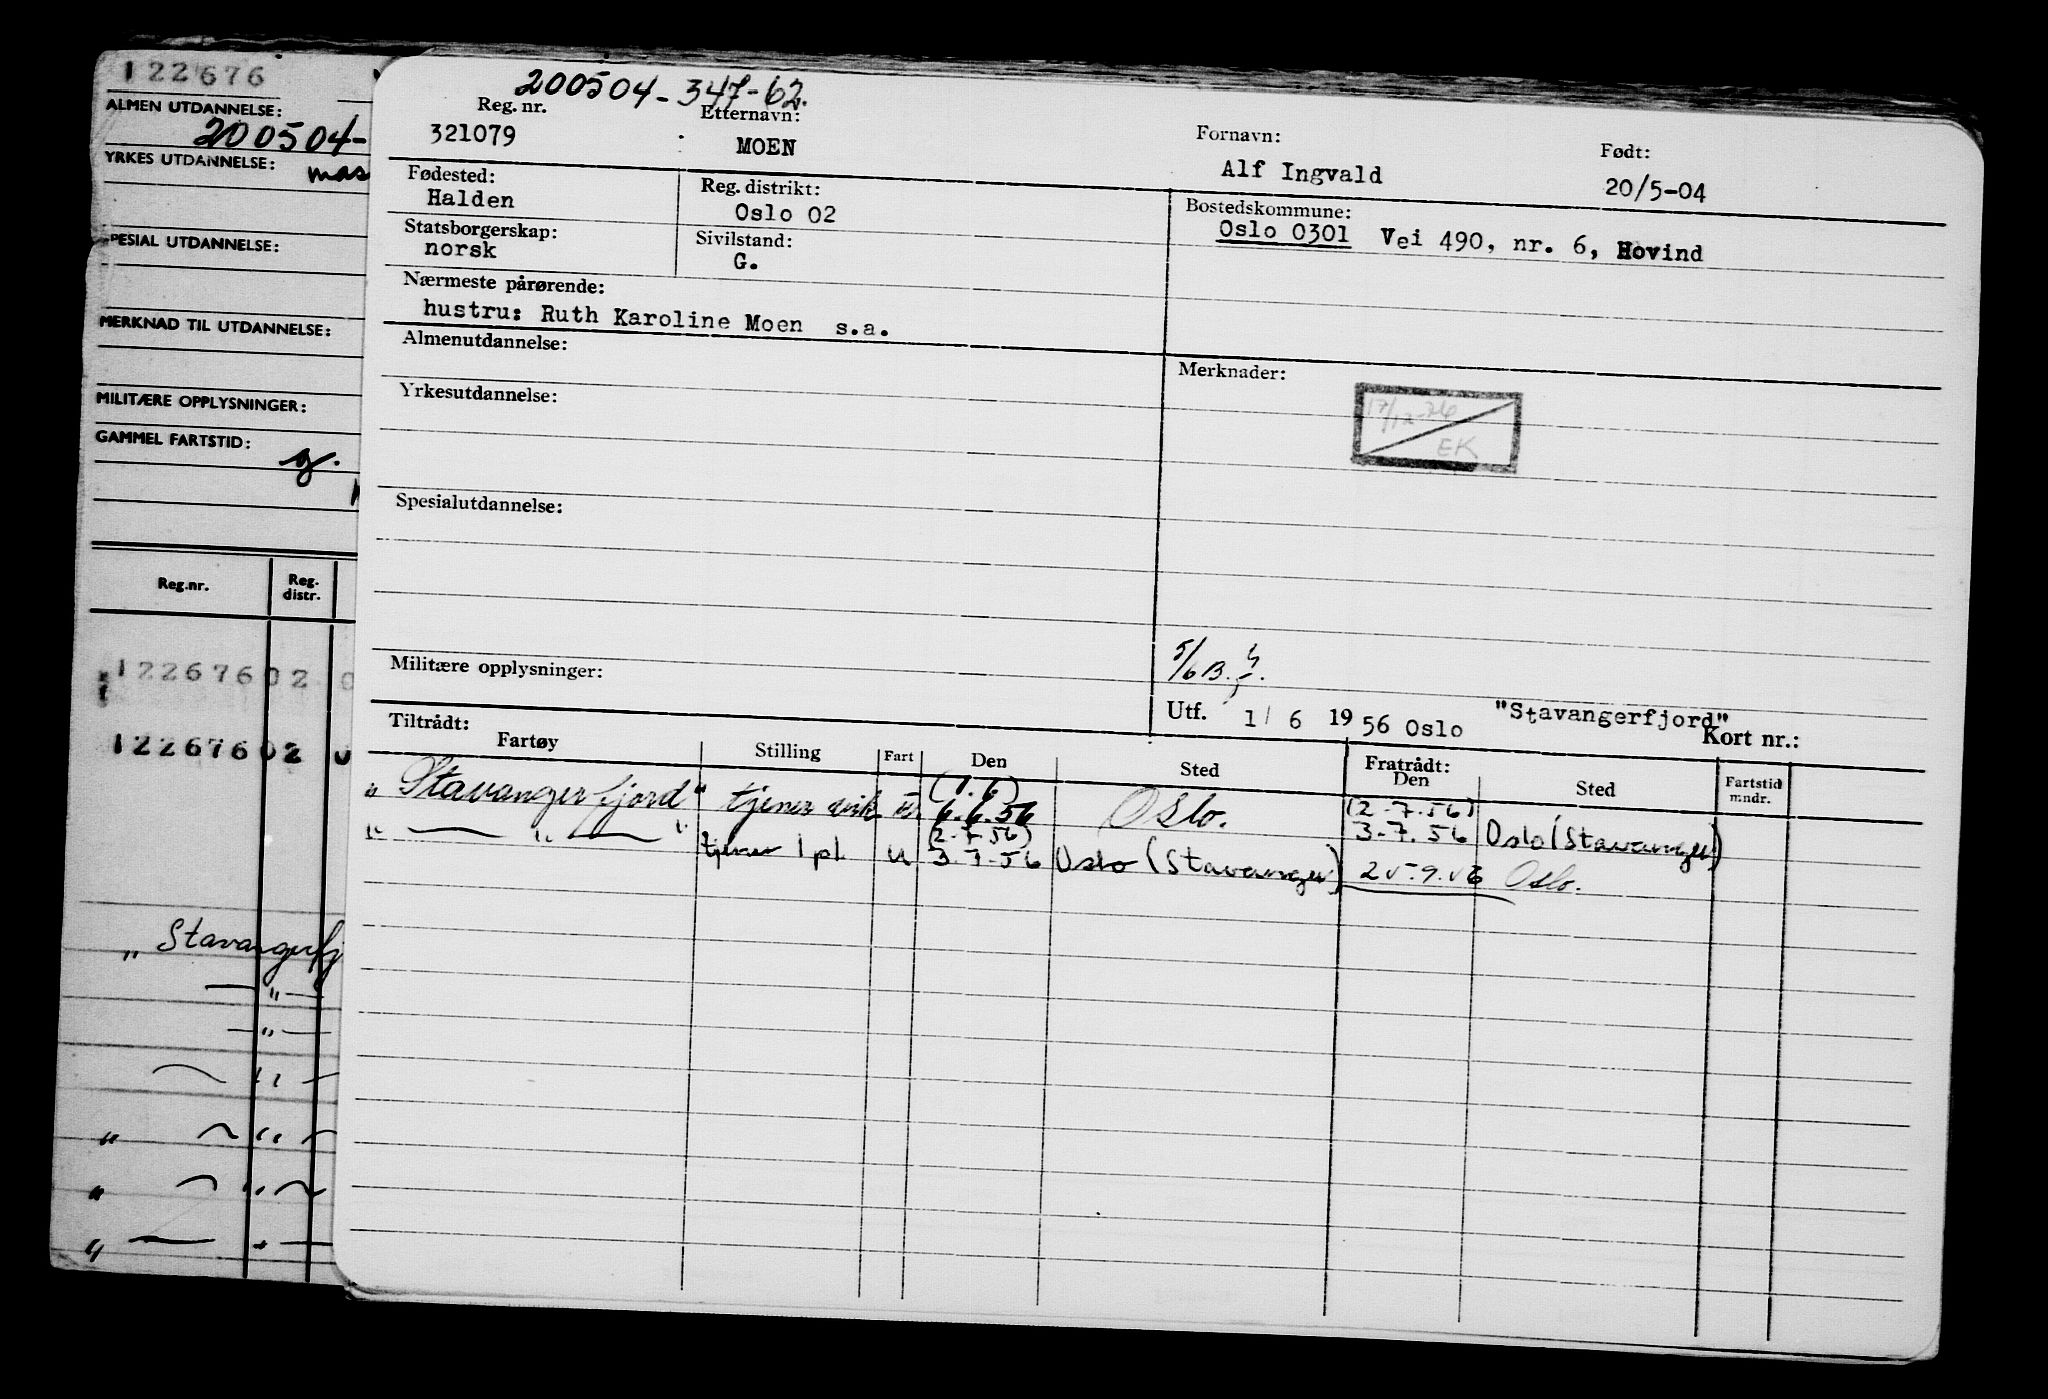 122676
ALMEN UTDANNELSE:
200504-
YRKES UTDANNELSE: mas
SPESIAL UTDANNELSE:
MERKNAD TIL UTDANNELSE:
MILITÆRE OPPLYSNINGER:
GAMMEL FARTSTID: g.
Reg.nr. Reg. distr.
12267602 0
12267602
„ Stavangerfj
— „ —
— „ —
— „ —
„ — „ —
„ — „ —
„ — „ —
200504-347-62.
Reg. nr. Etternavn: Fornavn: Født:
321079 MOEN Alf Ingvald 20/5-04
Fødested: Reg. distrikt: Bostedskommune:
Halden Oslo 02 Oslo 0301 Vei 490, nr. 6, Hovind
Statsborgerskap: Sivilstand:
norsk G.
Nærmeste pårørende:
hustru: Ruth Karoline Moen s.a.
Almenutdannelse: Merknader:
17/12-76
EK
Yrkesutdannelse:
Spesialutdannelse:
5/6 B.
Militære opplysninger:
Utf. 1/ 6 1956 Oslo "Stavangerfjord"
Kort nr.:
Tiltrådt: Fratrådt:
Fartøy Stilling Fart Den Sted Den Sted Fartstid mndr.
(1.6) (2.7.56)
„ Stavangerfjord" tjener 6.6.56 Oslo. 3.7.56 Oslo (Stavanger)
(2.7.56)
„ — „ — " tjener 1 pl. u 3.7.56 Oslo (Stavanger) 25.9.56 Oslo.